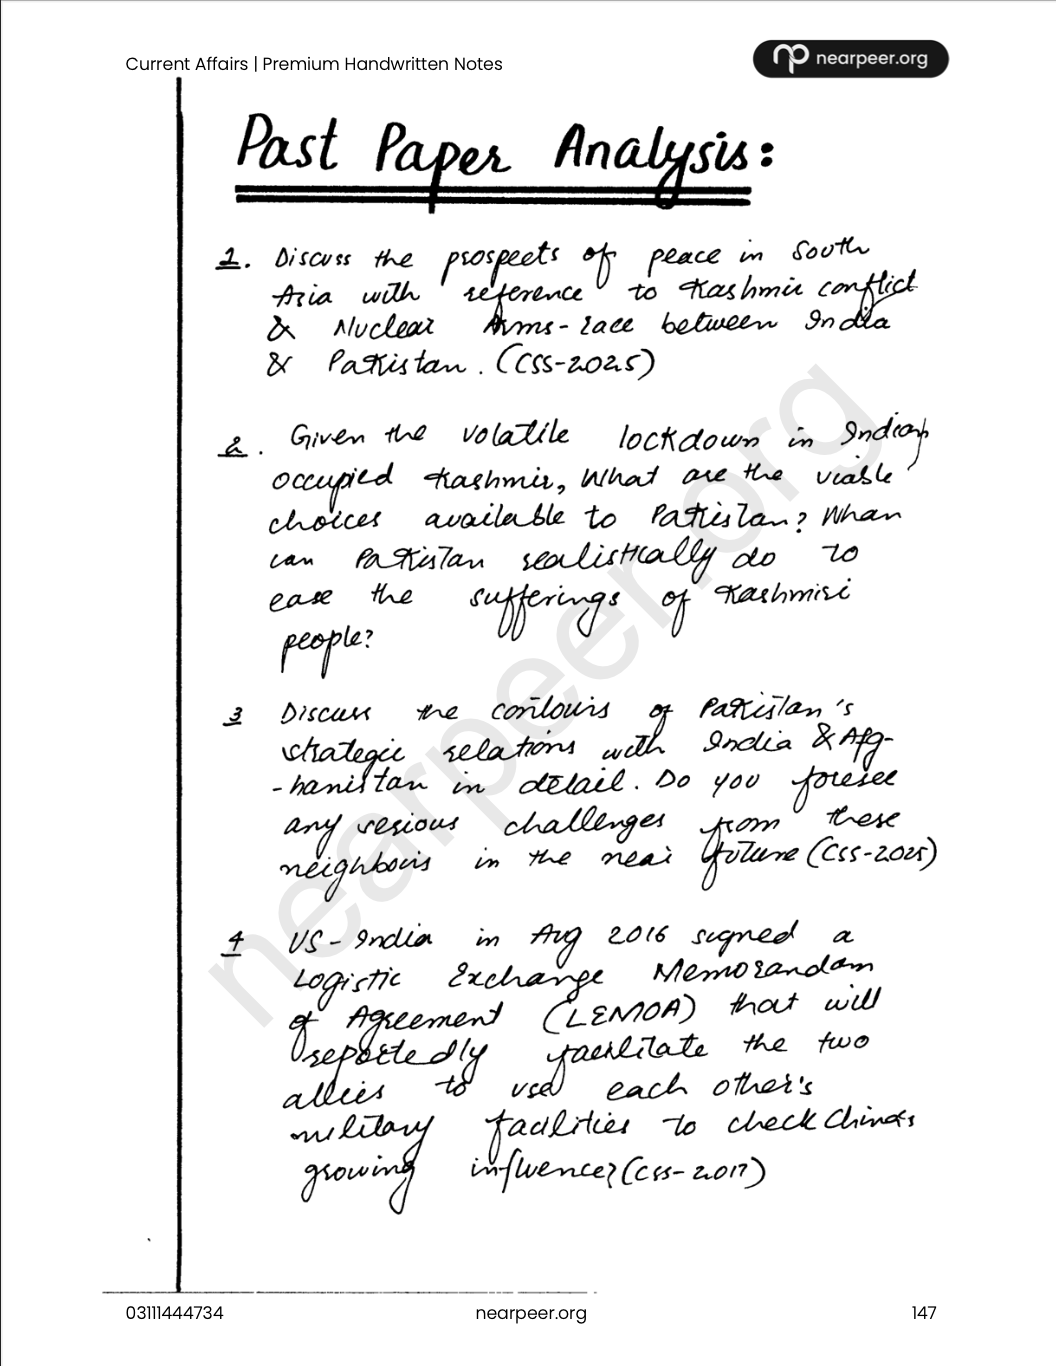 Current Affairs | Premium Handwritten Notes
nearpeer.org
Past Paper Analysis:
1. Discuss the prospects of peace in South
Asia with reference to Kashmir conflict
& Nuclear Arms-race between India
& Pakistan. (CSS-2025)
2. Given the volatile lockdown in Indian
occupied Kashmir, What are the viable
choices available to Pakistan? Whan
can Pakistan realistically do to
ease the sufferings of Kashmiri
people?
3 Discuss the contours of Pakistan's
strategic relations with India & Afg-
-hanistan in detail. Do you foresee
any serious challenges from these
neighbours in the near future (CSS-2025)
4 US-India in Aug 2016 signed a
Logistic Exchange Memorandam
of Agreement (LEMOA) that will
reportedly facilitate the two
allies to use each other's
military facilities to check China's
growing influence? (CSS-2017)
nearpeer.org
03111444734 nearpeer.org 147